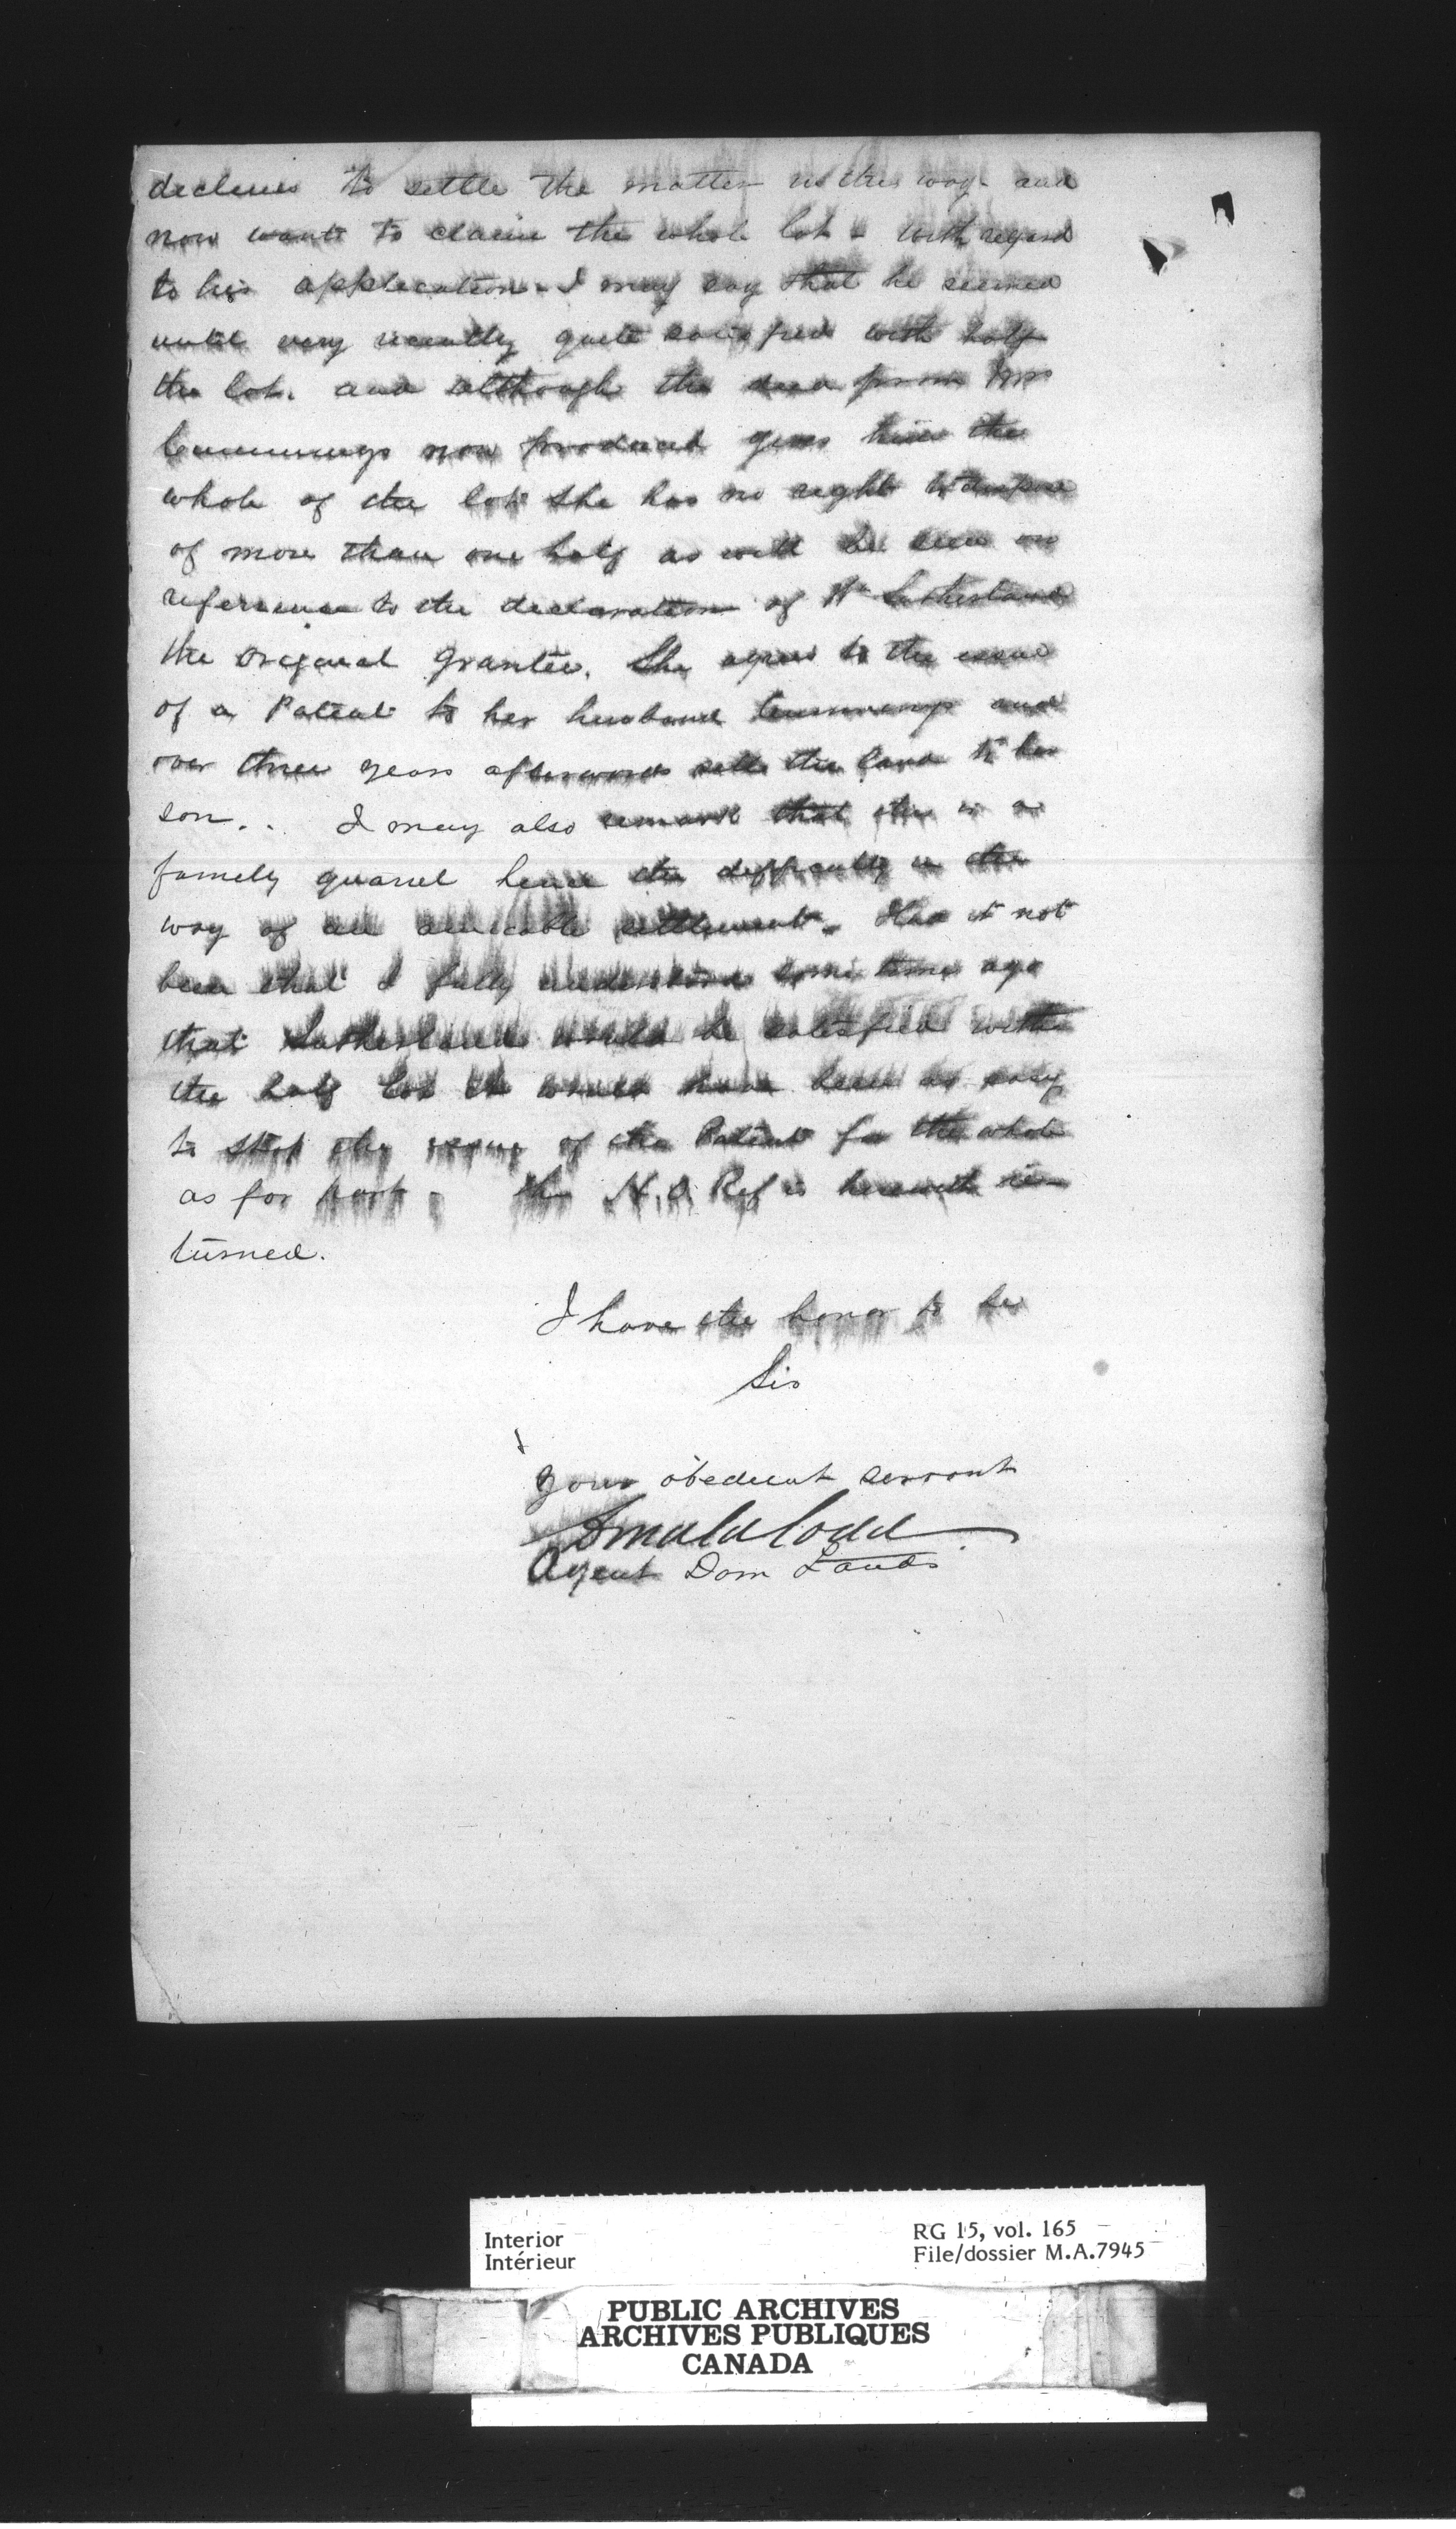 declines to settle the matter in this way and
now wants to claim the whole lot - with regard
to his application. I may say that he seemed
until very recently quite satisfied with half
the lot. and although the deed from Mrs
Cummings now produced gives him the
whole of the lot she has no right to dispose
of more than one half as will be seen on
reference to the declaration of Wm Sutherland
the original grantee. She agrees to the issue
of a Patent to her husband Cummings and
over three years afterwards sells the land to her
son.. I may also remark that this is a
family quarrel hence the difficulty in the
way of an amicable settlement. Had it not
been that I fully understood some time ago
that Sutherland would be satisfied with
the half lot it would have been as easy
to stop the issue of the Patent for the whole
as for part. The H.O. Ref is herewith re
turned.
I have the honor to be
Sir
Your obedient servant
Donald Codd
Agent Dom Lands
Interior
Intérieur
RG 15, vol. 165
File/dossier M.A.7945
PUBLIC ARCHIVES
ARCHIVES PUBLIQUES
CANADA